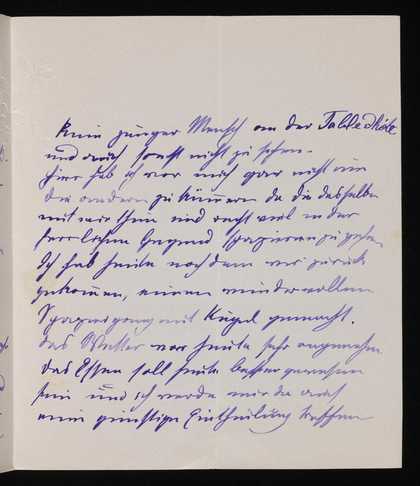 Kein junger Mensch an der Table d'hôte
und auch sonst nicht zu sehen.
Hier hab ich vor mich gar nicht um
die andern zu kümmern da die dasselbe
mit mir thun und recht viel in der
herrlichen Gegend spazieren zu gehen
Ich hab heute nachdem wir zurück
gekommen, einen wundervollen
Spaziergang mit Kugel gemacht.
Das Wetter war heute sehr angenehm
das Essen soll heute besser gewesen
sein und ich werde mir da auch
eine günstige Eintheilung treffen